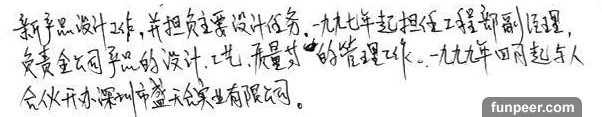 新产品设计工作,并担负主要设计任务。一九九七年起担任工程部副经理,
负责全公司产品的设计、工艺、质量等的管理工作。一九九九年四月起与人
合伙开办深圳市盛天台实业有限公司。
funpeer.com